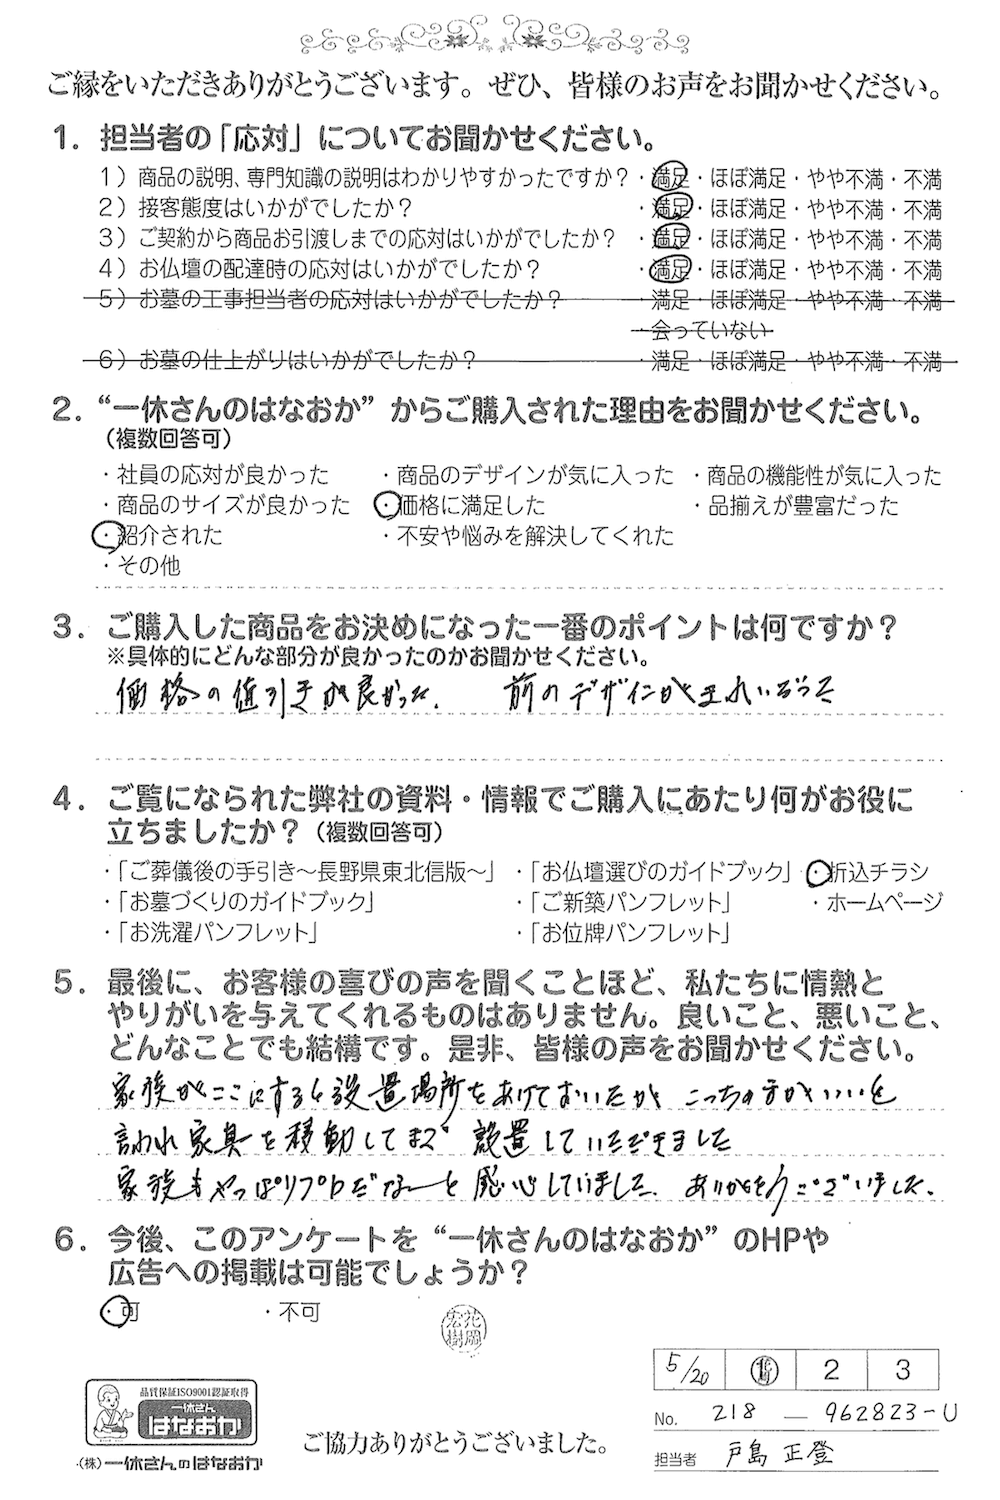 ご縁をいただきありがとうございます。ぜひ、皆様のお声をお聞かせください。
1．担当者の「応対」についてお聞かせください。
1）商品の説明、専門知識の説明はわかりやすかったですか？・満足・ほぼ満足・やや不満・不満
2）接客態度はいかがでしたか？・満足・ほぼ満足・やや不満・不満
3）ご契約から商品お引渡しまでの応対はいかがでしたか？・満足・ほぼ満足・やや不満・不満
4）お仏壇の配達時の応対はいかがでしたか？・満足・ほぼ満足・やや不満・不満
5）お墓の工事担当者の応対はいかがでしたか？・満足・ほぼ満足・やや不満・不満
・会っていない
6）お墓の仕上がりはいかがでしたか？・満足・ほぼ満足・やや不満・不満
2．“一休さんのはなおか”からご購入された理由をお聞かせください。
（複数回答可）
・社員の応対が良かった ・商品のデザインが気に入った ・商品の機能性が気に入った
・商品のサイズが良かった ・価格に満足した ・品揃えが豊富だった
・紹介された ・不安や悩みを解決してくれた
・その他
3．ご購入した商品をお決めになった一番のポイントは何ですか？
※具体的にどんな部分が良かったのかお聞かせください。
価格の値引きが良かった． 前のデザインがきれいだった
4．ご覧になられた弊社の資料・情報でご購入にあたり何がお役に
立ちましたか？（複数回答可）
・「ご葬儀後の手引き〜長野県東北信版〜」 ・「お仏壇選びのガイドブック」 ・折込チラシ
・「お墓づくりのガイドブック」 ・「ご新築パンフレット」 ・ホームページ
・「お洗濯パンフレット」 ・「お位牌パンフレット」
5．最後に、お客様の喜びの声を聞くことほど、私たちに情熱と
やりがいを与えてくれるものはありません。良いこと、悪いこと、
どんなことでも結構です。是非、皆様の声をお聞かせください。
家族がここにすると設置場所をあけておいたが こっちの方がいいと
言われ家具を移動してまで 設置していただきました
家族もやっぱりプロだなーと感心していました．ありがとうございました．
6．今後、このアンケートを“一休さんのはなおか”のHPや
広告への掲載は可能でしょうか？
・可 ・不可
花岡宏樹
5/20 2 3
No. 218 — 962823-U
担当者 戸島 正登
品質保証ISO9001認証取得
一休さん
はなおか
(株)一休さんのはなおか
ご協力ありがとうございました。